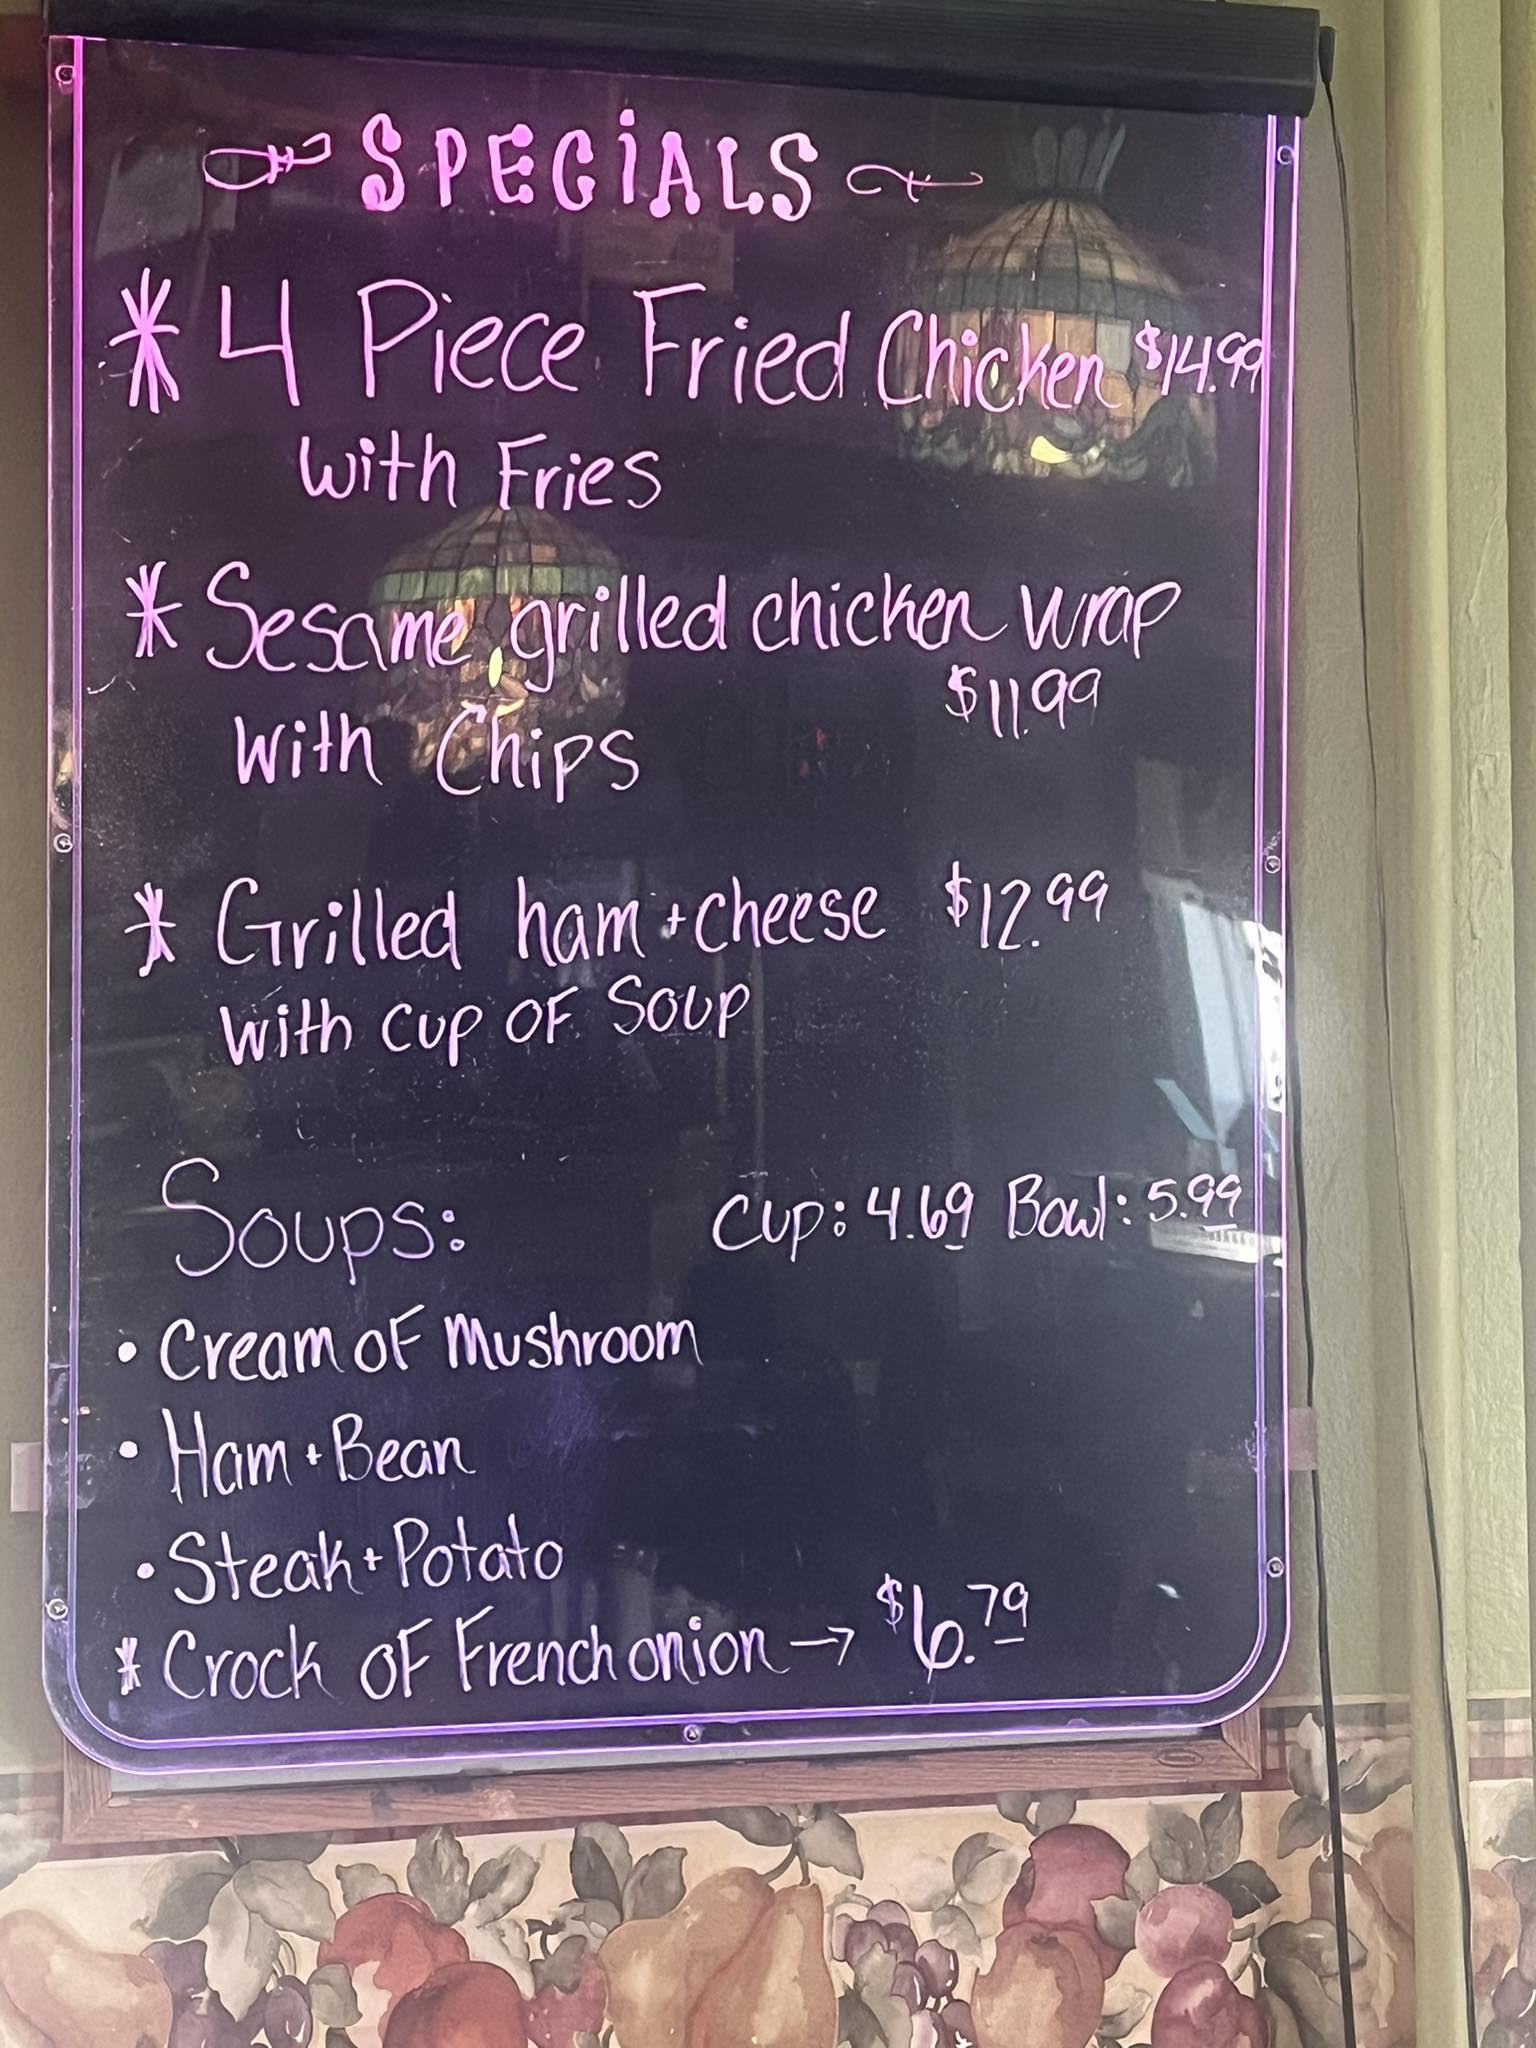 SPECIALS
* 4 Piece Fried Chicken $14.99
with Fries
* Sesame grilled chicken wrap
$11.99
with Chips
* Grilled ham + cheese $12.99
with cup of Soup
Soups: Cup: 4.69 Bowl: 5.99
• Cream of Mushroom
• Ham + Bean
• Steak + Potato
* Crock of French onion → $6.79